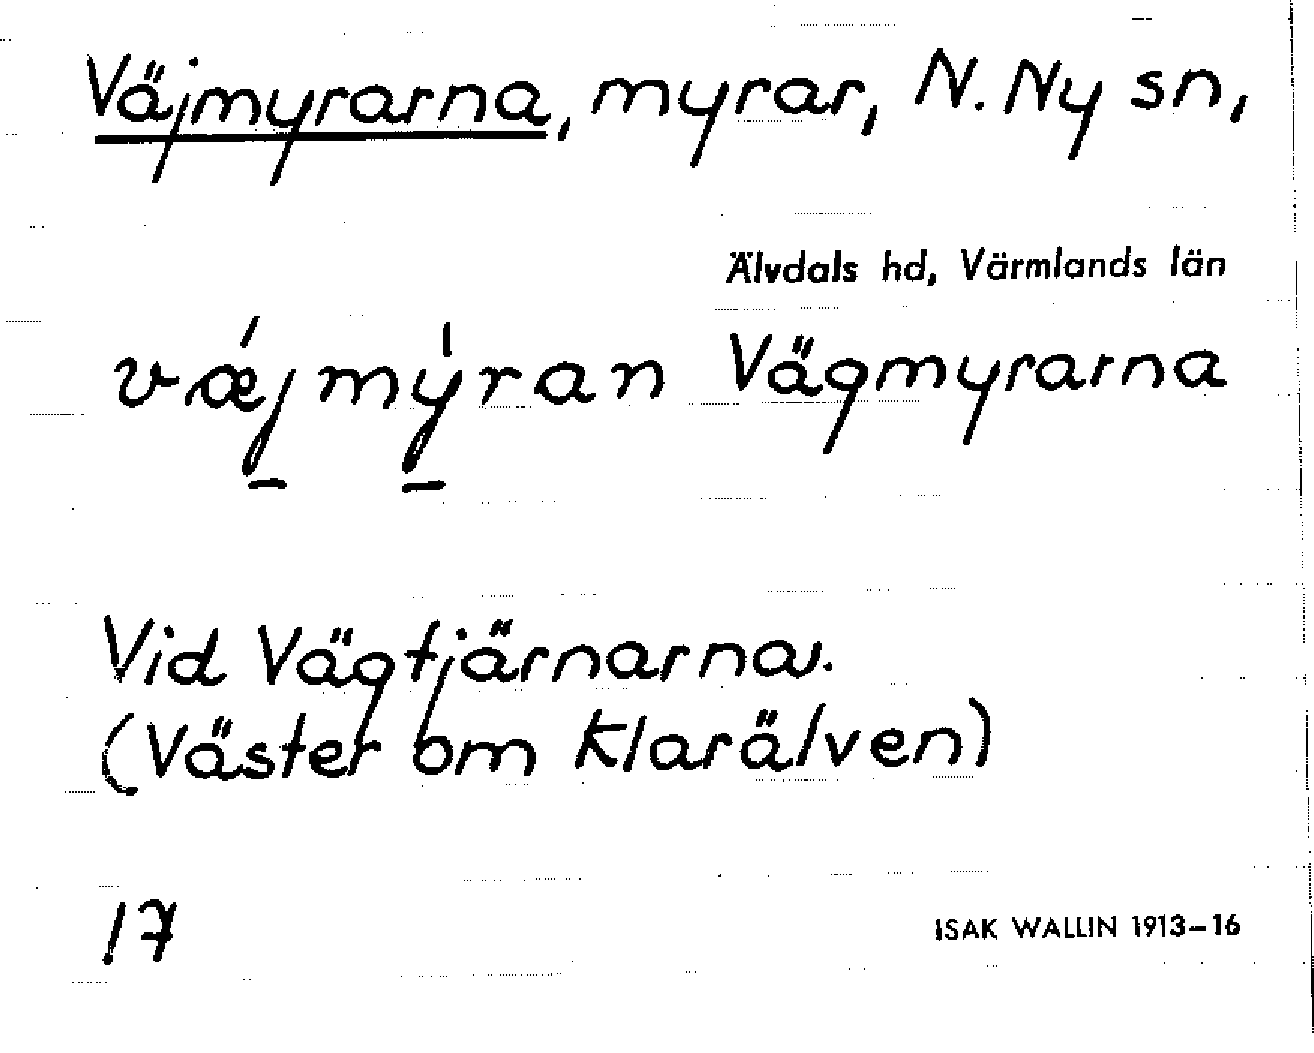 Väjmyrarna, myrar, N. Ny sn,
Älvdals hd, Värmlands län
vǽjmýran Vägmyrarna
Vid Vägtjärnarna.
(Väster om Klarälven)
17
ISAK WALLIN 1913-16